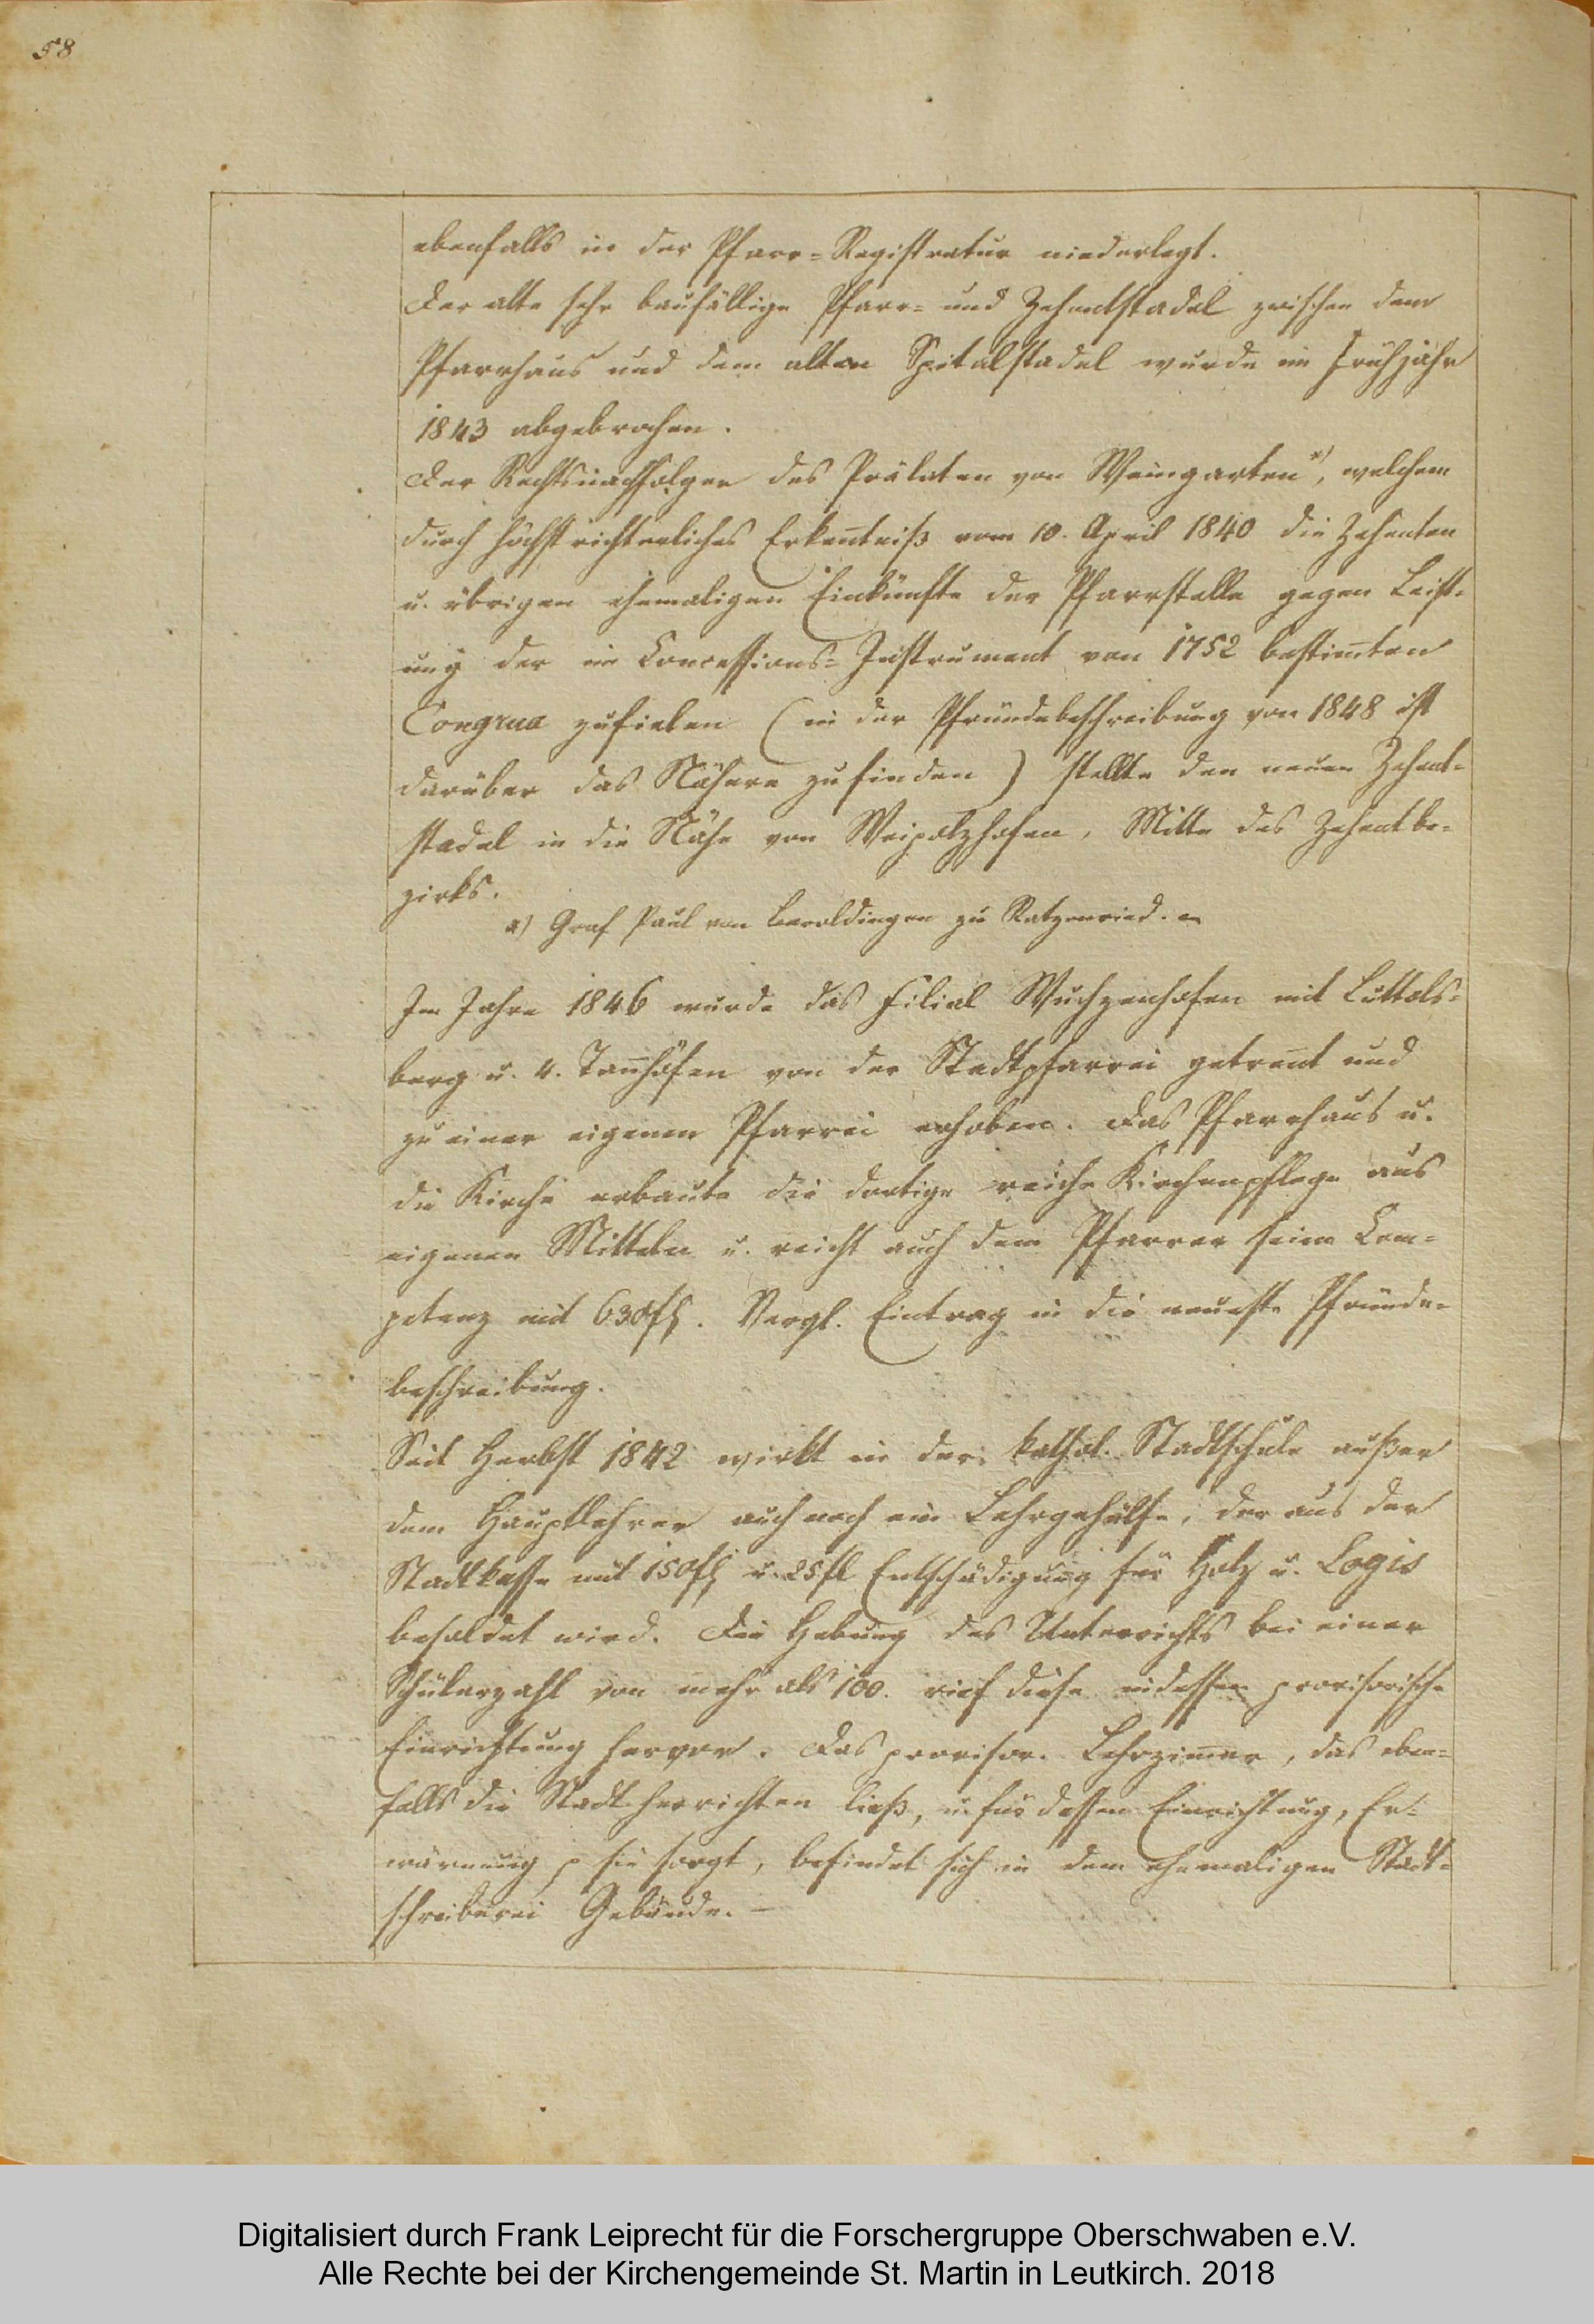 58
ebenfalls in der Pfarr=Registratur niederlegt.
Der alte sehr baufällige Pfarr= und Zehentstadel zwischen dem
Pfarrhaus und dem alten Spitalstadel wurde im Frühjahr
1843 abgebrochen.
Der Rechtsnachfolger des Prälaten von Weingarten *), welchem
durch höchstrichterliches Erkentniß vom 10. April 1840 die Zehenten
u. übrigen ehemaligen Einkünfte der Pfarrstelle gegen Leist=
ung der im Concessions=Instrument von 1752 bestimten
Congrua zufielen (in der Pfründebeschreibung von 1848 ist
darüber das Nähere zu finden) stellte den neuen Zehent=
stadel in die Nähe von Weipolzhofen, Mitte des Zehentbe=
zirks.
*) Graf Paul von Beroldingen zu Ratzenried.
Im Jahre 1846 wurde das Filial Wuchzenhofen mit Luttols=
berg u. 4. Tannhöfen von der Stadtpfarrei getrent und
zu einer eigenen Pfarrei erhoben. Das Pfarrhaus u.
die Kirche erbaute die dortige reiche Kirchenpflege aus
eigenen Mitteln u. reicht auch dem Pfarrer seine Com=
petenz mit 630 fl. Vergl. Eintrag in die neueste Pfründe=
beschreibung.
Seit Herbst 1842 wirkt in der kathol. Stadtschule außer
dem Hauptlehrer auch noch ein Lehrgehülfe, der aus der
Stadtkasse mit 150 fl u. 25 fl Entschädigung für Holz u. Logis
besoldet wird. Die Hebung des Unterrichts bei einer
Schülerzahl von mehr als 100. rief diese indessen provisorische
Einrichtung hervor. Das provisor. Lehrzimer, das eben=
falls die Stadt herrichten ließ, u. für dessen Einrichtung, Er=
wärmung p sie sorgt, befindet sich in dem ehemaligen Stadt=
schreiberei Gebäude. –
Digitalisiert durch Frank Leiprecht für die Forschergruppe Oberschwaben e.V.
Alle Rechte bei der Kirchengemeinde St. Martin in Leutkirch. 2018